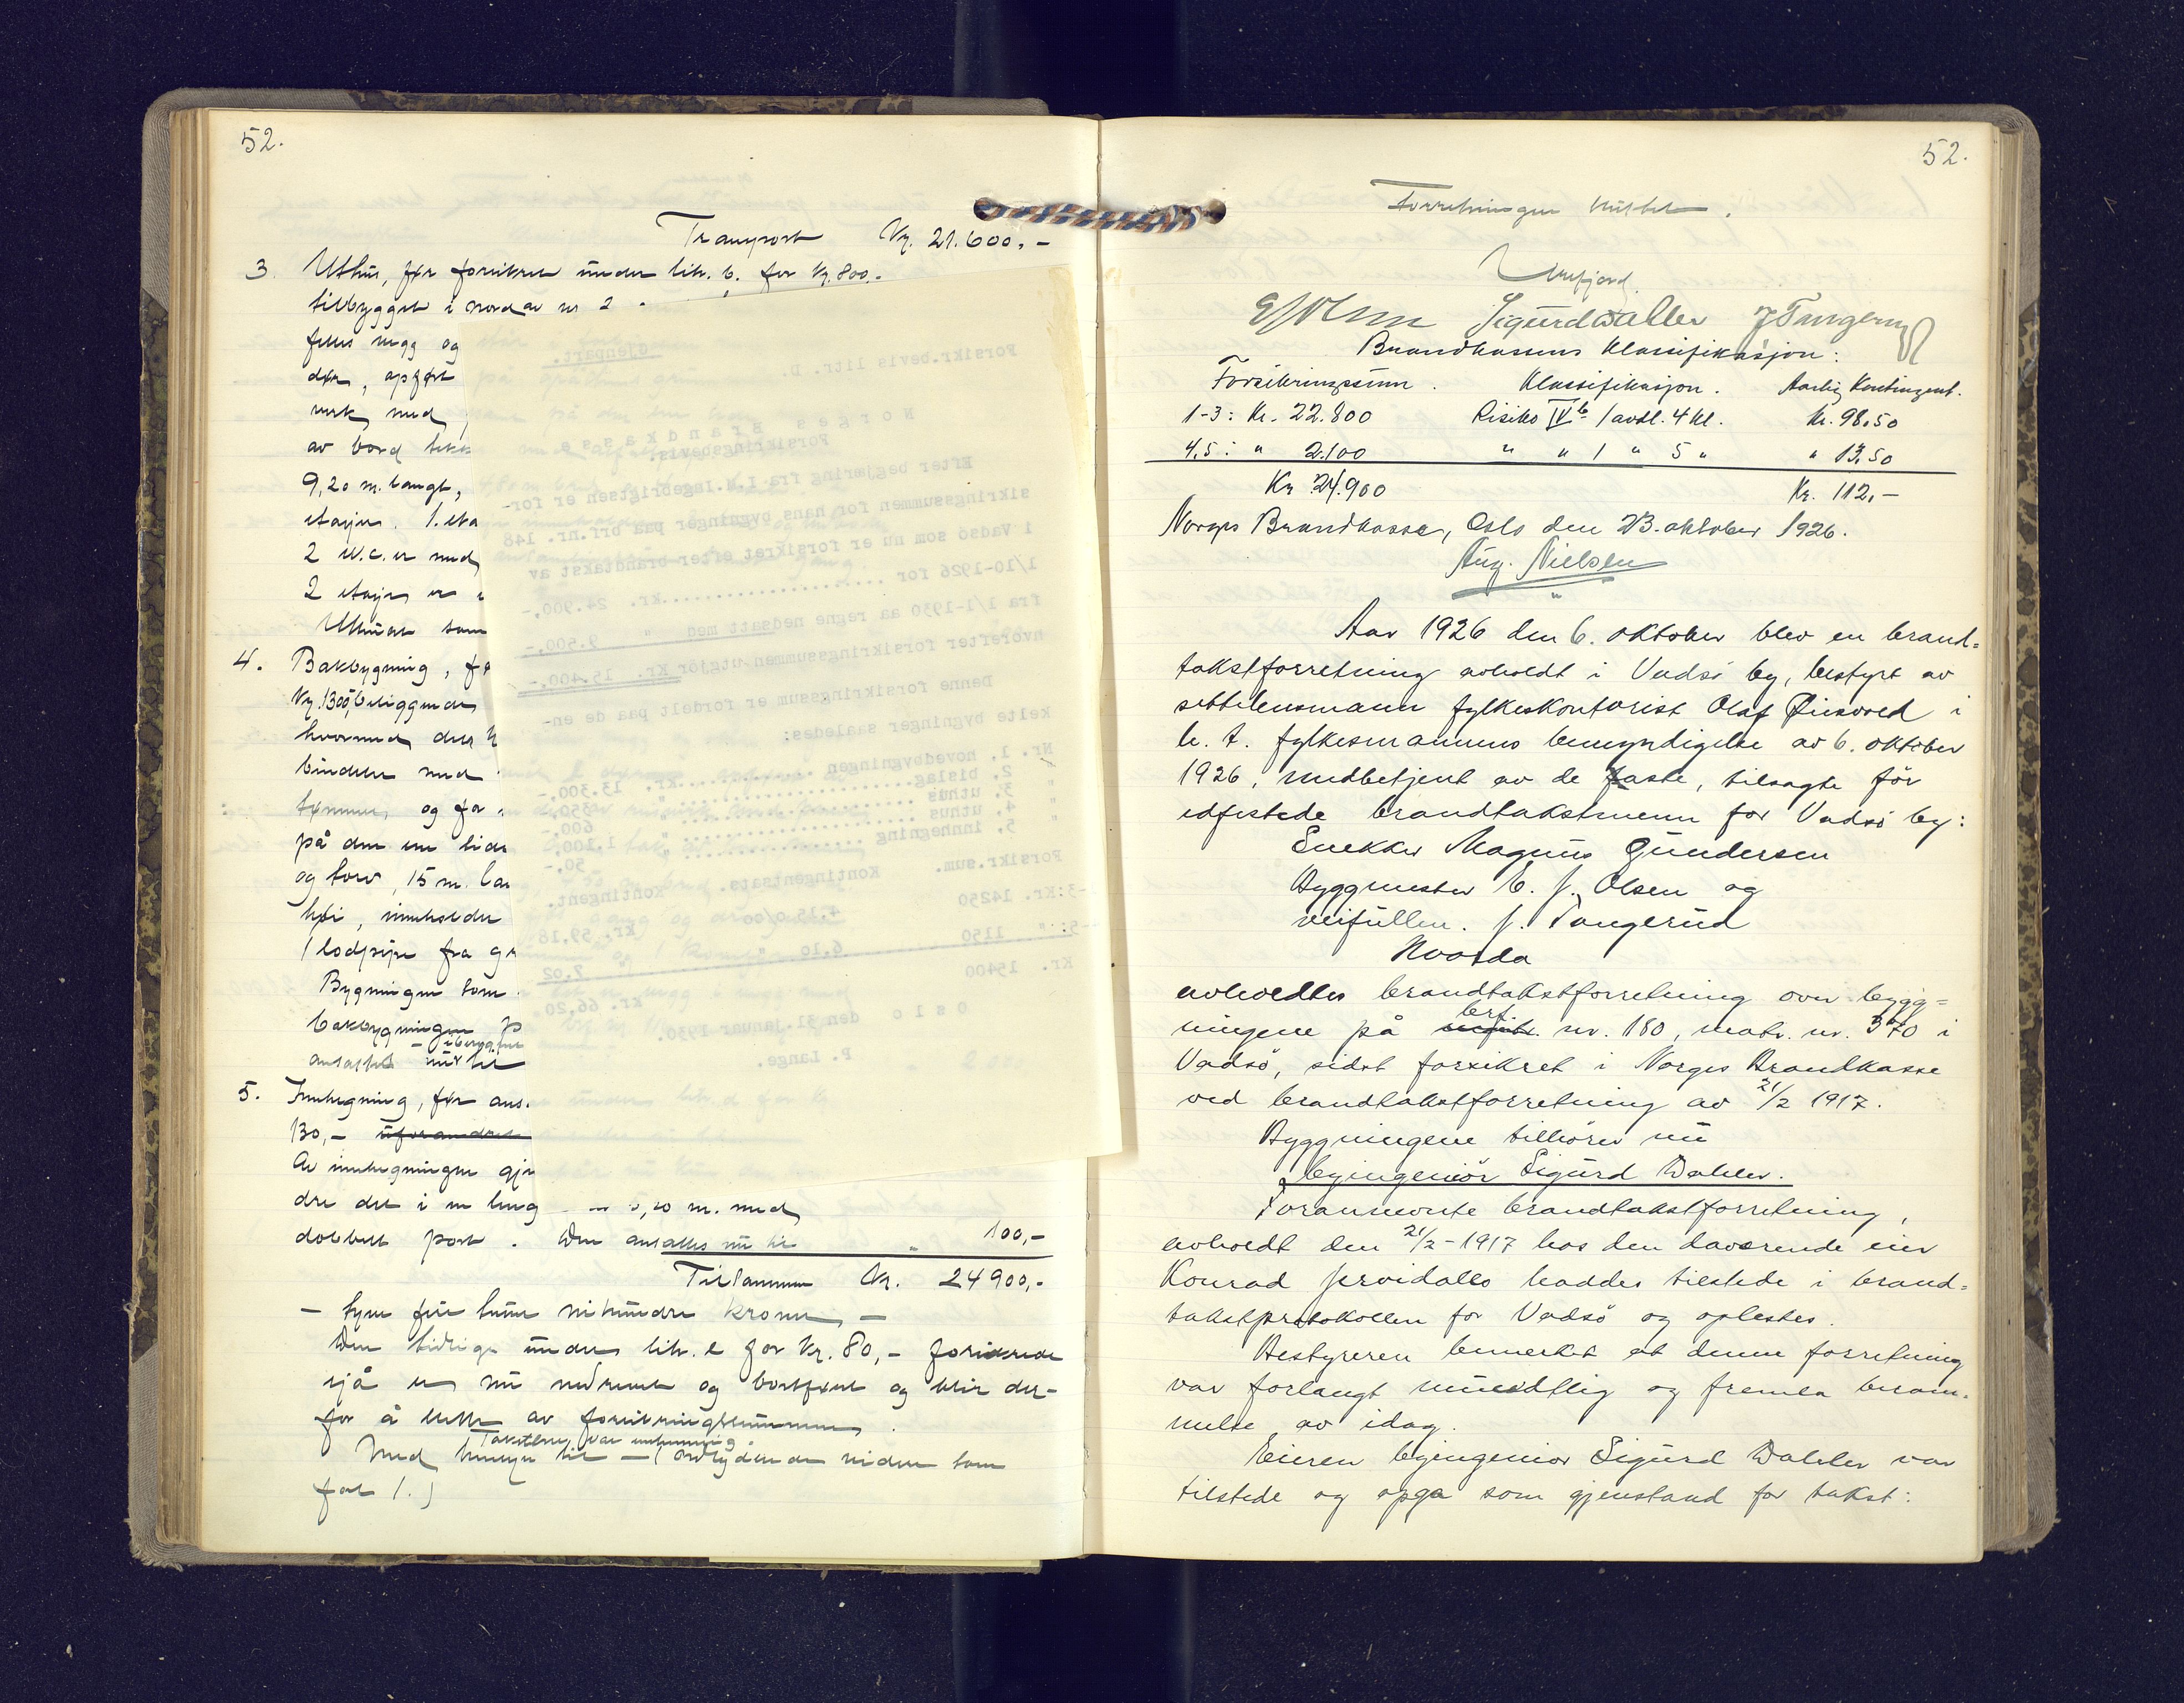 52.
Transport Kr. 21.600.-
3. Uthus, før forsikret under litr. b. for Kr. 800.-
tilbygget i nord av nr 2
felles vegg og
dør, opført
verk med
av bord
9,20 m. langt,
etasjer. 1. eta
2 W.c. er med
2 etasjes er
Uthuset som
4. Bakbygning, fø
Kr. 1300,- beliggende
hvormed den
bindelse med
tømmer og for
på den ene side
og torv, 15 m. lan
høi, inneholder
1 lodpipe fra
Bygningen som
bakbygningen
ansattes nu til
5. Innhegning, før ans.
130,- uforandret
Av innhegningen
dre det i en leng 5,20 m. med
dobbelt port. Den ansattes nu til " 100,-
Tilsammen Kr. 24900,-
- tyve fire tusen nihundre kroner -
Den tidligere under litr. e for Kr. 80,- forsikrede
sjå er nu nedrevet og bortført og blir der-
for å slette av forsikringssummen.
Takstens var enstemmig
Med hensyn til - (ordlydende videre som
fol 1.)
Gjenpart.
Forsikr.bevis litr. D.
Norges Brandkasse
Forsikringsbevis.
Efter begjæring fra I.M.Ingebrigtsen er for-
sikringssummen for hans bygninger paa brf.nr. 148
i Vadsö som nu er forsikret efter brandtakst av
1/10-1926 for ........ kr. 24.900,-
fra 1/1-1930 aa regne nedsatt med " 9.500,-
hvorefter forsikringssummen utgjör Kr. 15.400,-
Denne forsikringssum er fordelt paa de en-
kelte bygninger saaledes:
Nr. 1, hovedbygningen ........ kr. 13.300,-
" 2, bislag ........ " 350,-
" 3, uthus ........ " 600,-
" 4, uthus ........ " 1.100,-
" 5, innhegning ........ " 50,-
Forsikr.sum. Kontingentsats. Kontingent.
-3:Kr. 14250 4.15 o/oo kr. 59.18
-5: " 1150 6.10 " " 7.02
Kr. 15400 kr. 66,20.
Oslo den 31.januar 1930.
P. Lange.
52.
Forretningen sluttet.
Sigurd Waller J Tangerud
Brandkassens klassifikasjon:
Forsikringssum. Klassifikasjon. Aarlig Kontingent.
1-3: Kr. 22.800 Risiko IV b 1 avdl. 4 kl. Kr. 98.50
4,5: " 2.100 " " 1 " 5 " " 13.50
Kr 24.900 Kr. 112,-
Norges Brandkasse, Oslo den 23. oktober 1926.
Aug. Nielsen
Aar 1926 den 6. oktober blev en brand-
takstforretning avholdt i Vadsö by, bestyrt av
settelensmann fylkeskontorist Olaf i
h. t. fylkesmannens bemyndigelse av 6. oktober
1926, medbetjent av de faste, tilsagte før
edfestede brandtakstmenn for Vadsö by:
Snekker Magnus Gundersen
Byggmester E. J. Olsen og
veifullm. J. Tangerud
Hvorda
avholdtes brandtakstforretning over bygg-
ningene på brf. nr. 180, matr. nr. 370 i
Vadsö, sidst forsikret i Norges Brandkasse
ved brandtakstforretning av 21/2 1917.
Byggningene tilhörer nu
byingeniör Sigurd Waller.
Forannevnte brandtakstforretning,
avholdt den 21/2-1917 hos den daværende eier
Konrad haddes tilstede i brand-
takstprotokollen for Vadsö og oplestes.
Bestyreren bemerket at denne forretning
var forlangt mundtlig og fremla beram-
melse av idag.
Eieren byingeniör Sigurd Waller var
tilstede og opga som gjenstand for takst: